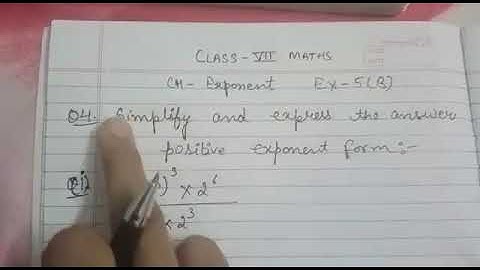 CLASS-VII MATHS
CH- Exponent Ex-5(B)
Q4. Simplify and express the answer
positive exponent form:-
)³ × 2⁶
× 2³